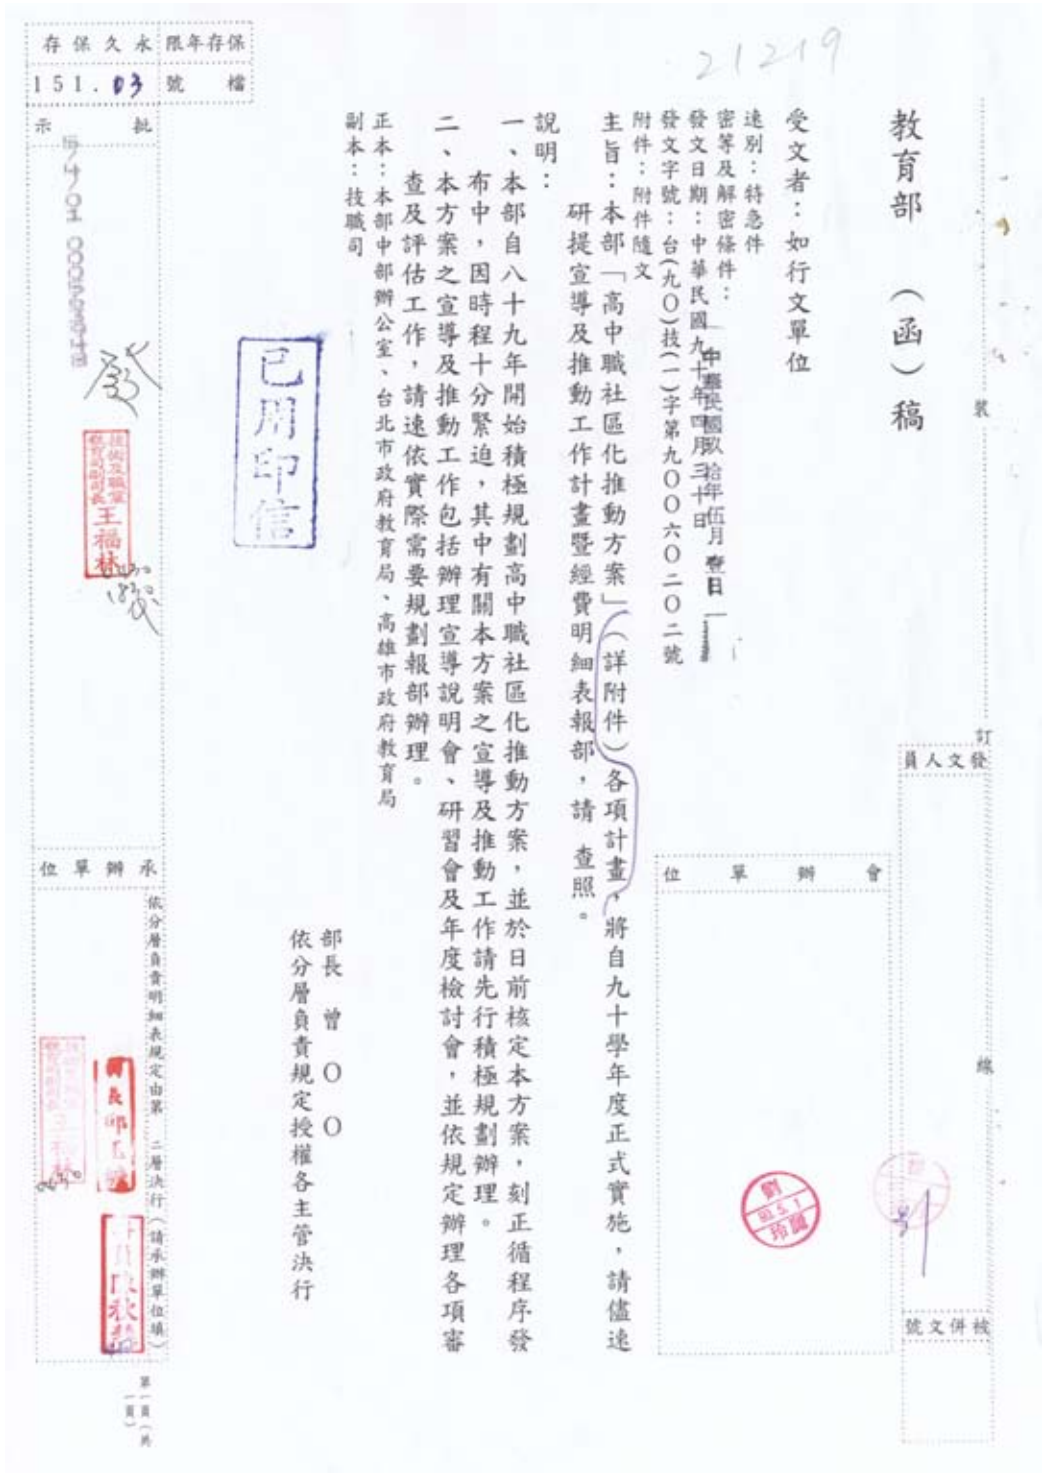 21219
保存年限
永久保存
檔號
151.03
教育部 （函）稿
受文者：如行文單位
速別：特急件
密等及解密條件：
發文日期：中華民國九十年四月三十日
中華民國玖拾年伍月壹日
發文字號：台(九○)技(一)字第九○○六○二○二號
附件：附件隨文
主旨：本部「高中職社區化推動方案」（詳附件）各項計畫，將自九十學年度正式實施，請儘速
研提宣導及推動工作計畫暨經費明細表報部，請 查照。
說明：
一、本部自八十九年開始積極規劃高中職社區化推動方案，並於日前核定本方案，刻正循程序發
布中，因時程十分緊迫，其中有關本方案之宣導及推動工作請先行積極規劃辦理。
二、本方案之宣導及推動工作包括辦理宣導說明會、研習會及年度檢討會，並依規定辦理各項審
查及評估工作，請速依實際需要規劃報部辦理。
正本：本部中部辦公室、台北市政府教育局、高雄市政府教育局
副本：技職司
部長 曾 ○ ○
依分層負責規定授權各主管決行
已用印信
裝
訂
線
發文人員
會辦單位
被併文號
劉
90.5.1
玲
批示
發
王福林
承辦單位
依分層負責明細表規定由第 二層決行（請承辦單位填）
第一頁（共
一頁）